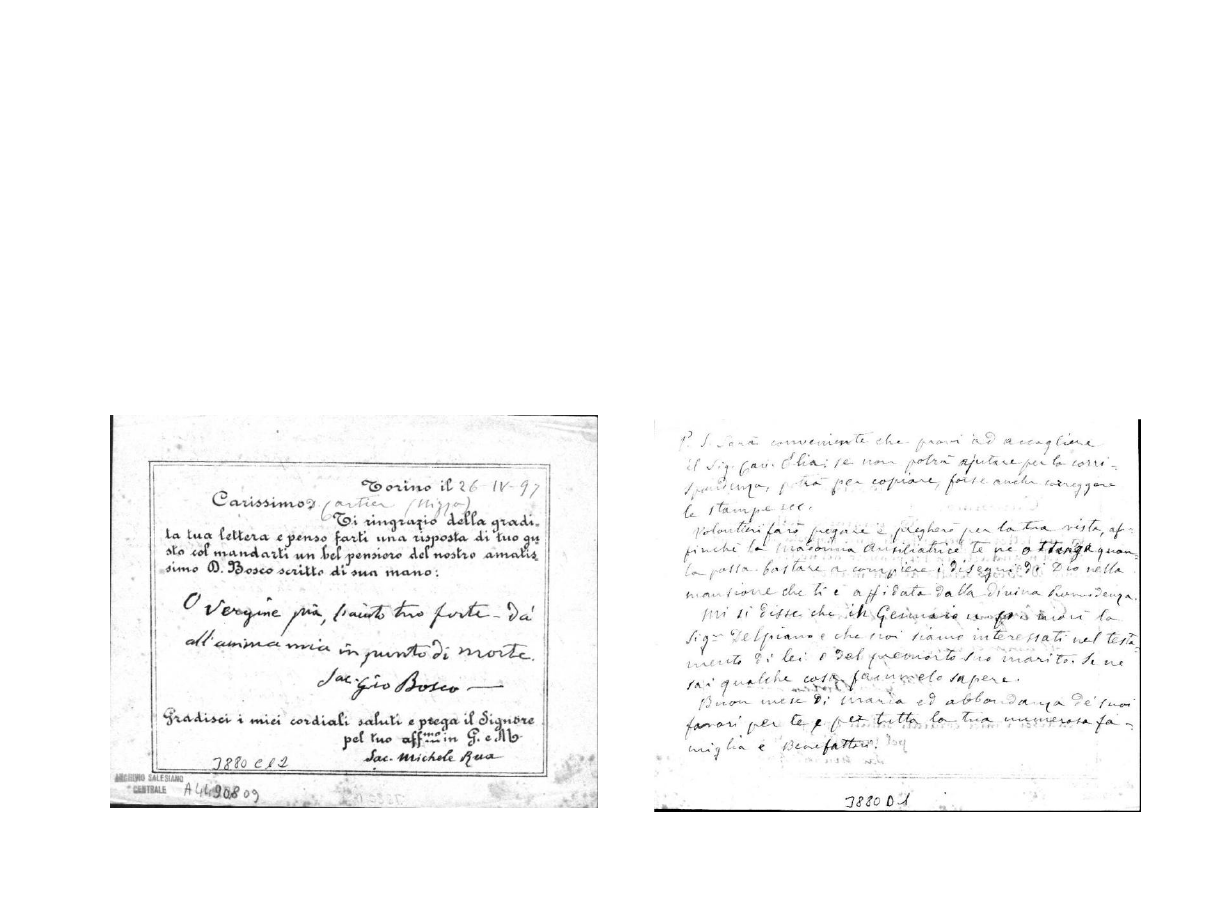 Torino il 26-IV-97
Carissimo D. Cartier (Nizza)
Ti ringrazio della gradi-
ta tua lettera e penso farti una risposta di tuo gu
sto col mandarti un bel pensiero del nostro amatis
simo D. Bosco scritto di sua mano:
O Vergine pia, l'aiuto tuo forte - Da'
all'anima mia in punto di morte.
Sac. Gio Bosco
Gradisci i miei cordiali saluti e prega il Signore
pel tuo aff.mo in G. e M
Sac. Michele Rua
3880 C 12
ARCHIVIO SALESIANO
CENTRALE
A4490809
P. S. Sarà conveniente che provi ad accogliere
il Sig. Cav. Elia: se non potrà ajutare per la corri-
spondenza, potrà per copiare, forse anche correggere
le stampe ecc.
Volontieri farò pregare e pregherò per la tua vista, af-
finchè la Madonna Ausiliatrice te ne ottenga quan-
ta possa bastare a compiere i disegni di Dio nella
mansione che ti è affidata dalla divina Provvidenza.
Mi si disse che in Gennaio morì la
Sig.ra Delpiano e che noi siamo interessati nel testa-
mento di lei o del premorto suo marito. Se ne
sai qualche cosa fammelo sapere.
Buon mese di Maria ed abbondanza de' suoi
favori per te e per tutta la tua numerosa fa-
miglia e Benefattori.
3880 D 1